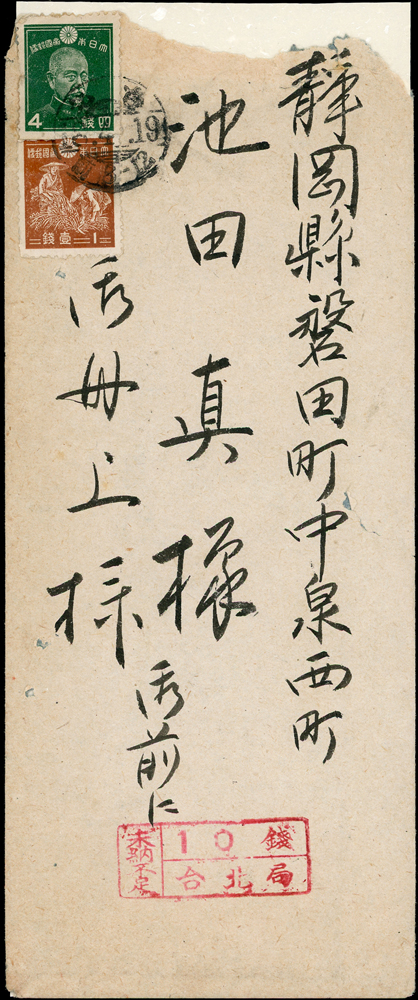 静岡縣磐田町中泉西町
池田真様
御母上様
御前に
大日本帝國郵便
4 四錢
大日本帝國郵便
壹錢 1
19
未納不足
10錢
台北局